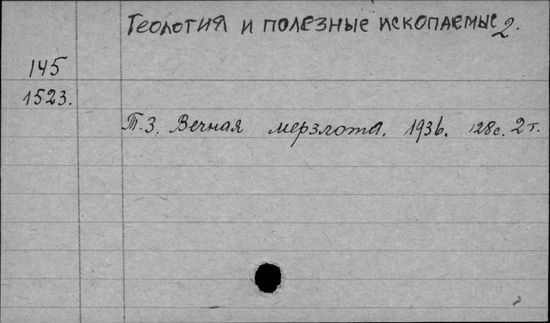 Геология и полезные ископаемые 2.
145
1523.
Т.3. Вечная мерзлота. 1936. 128с. 2т.